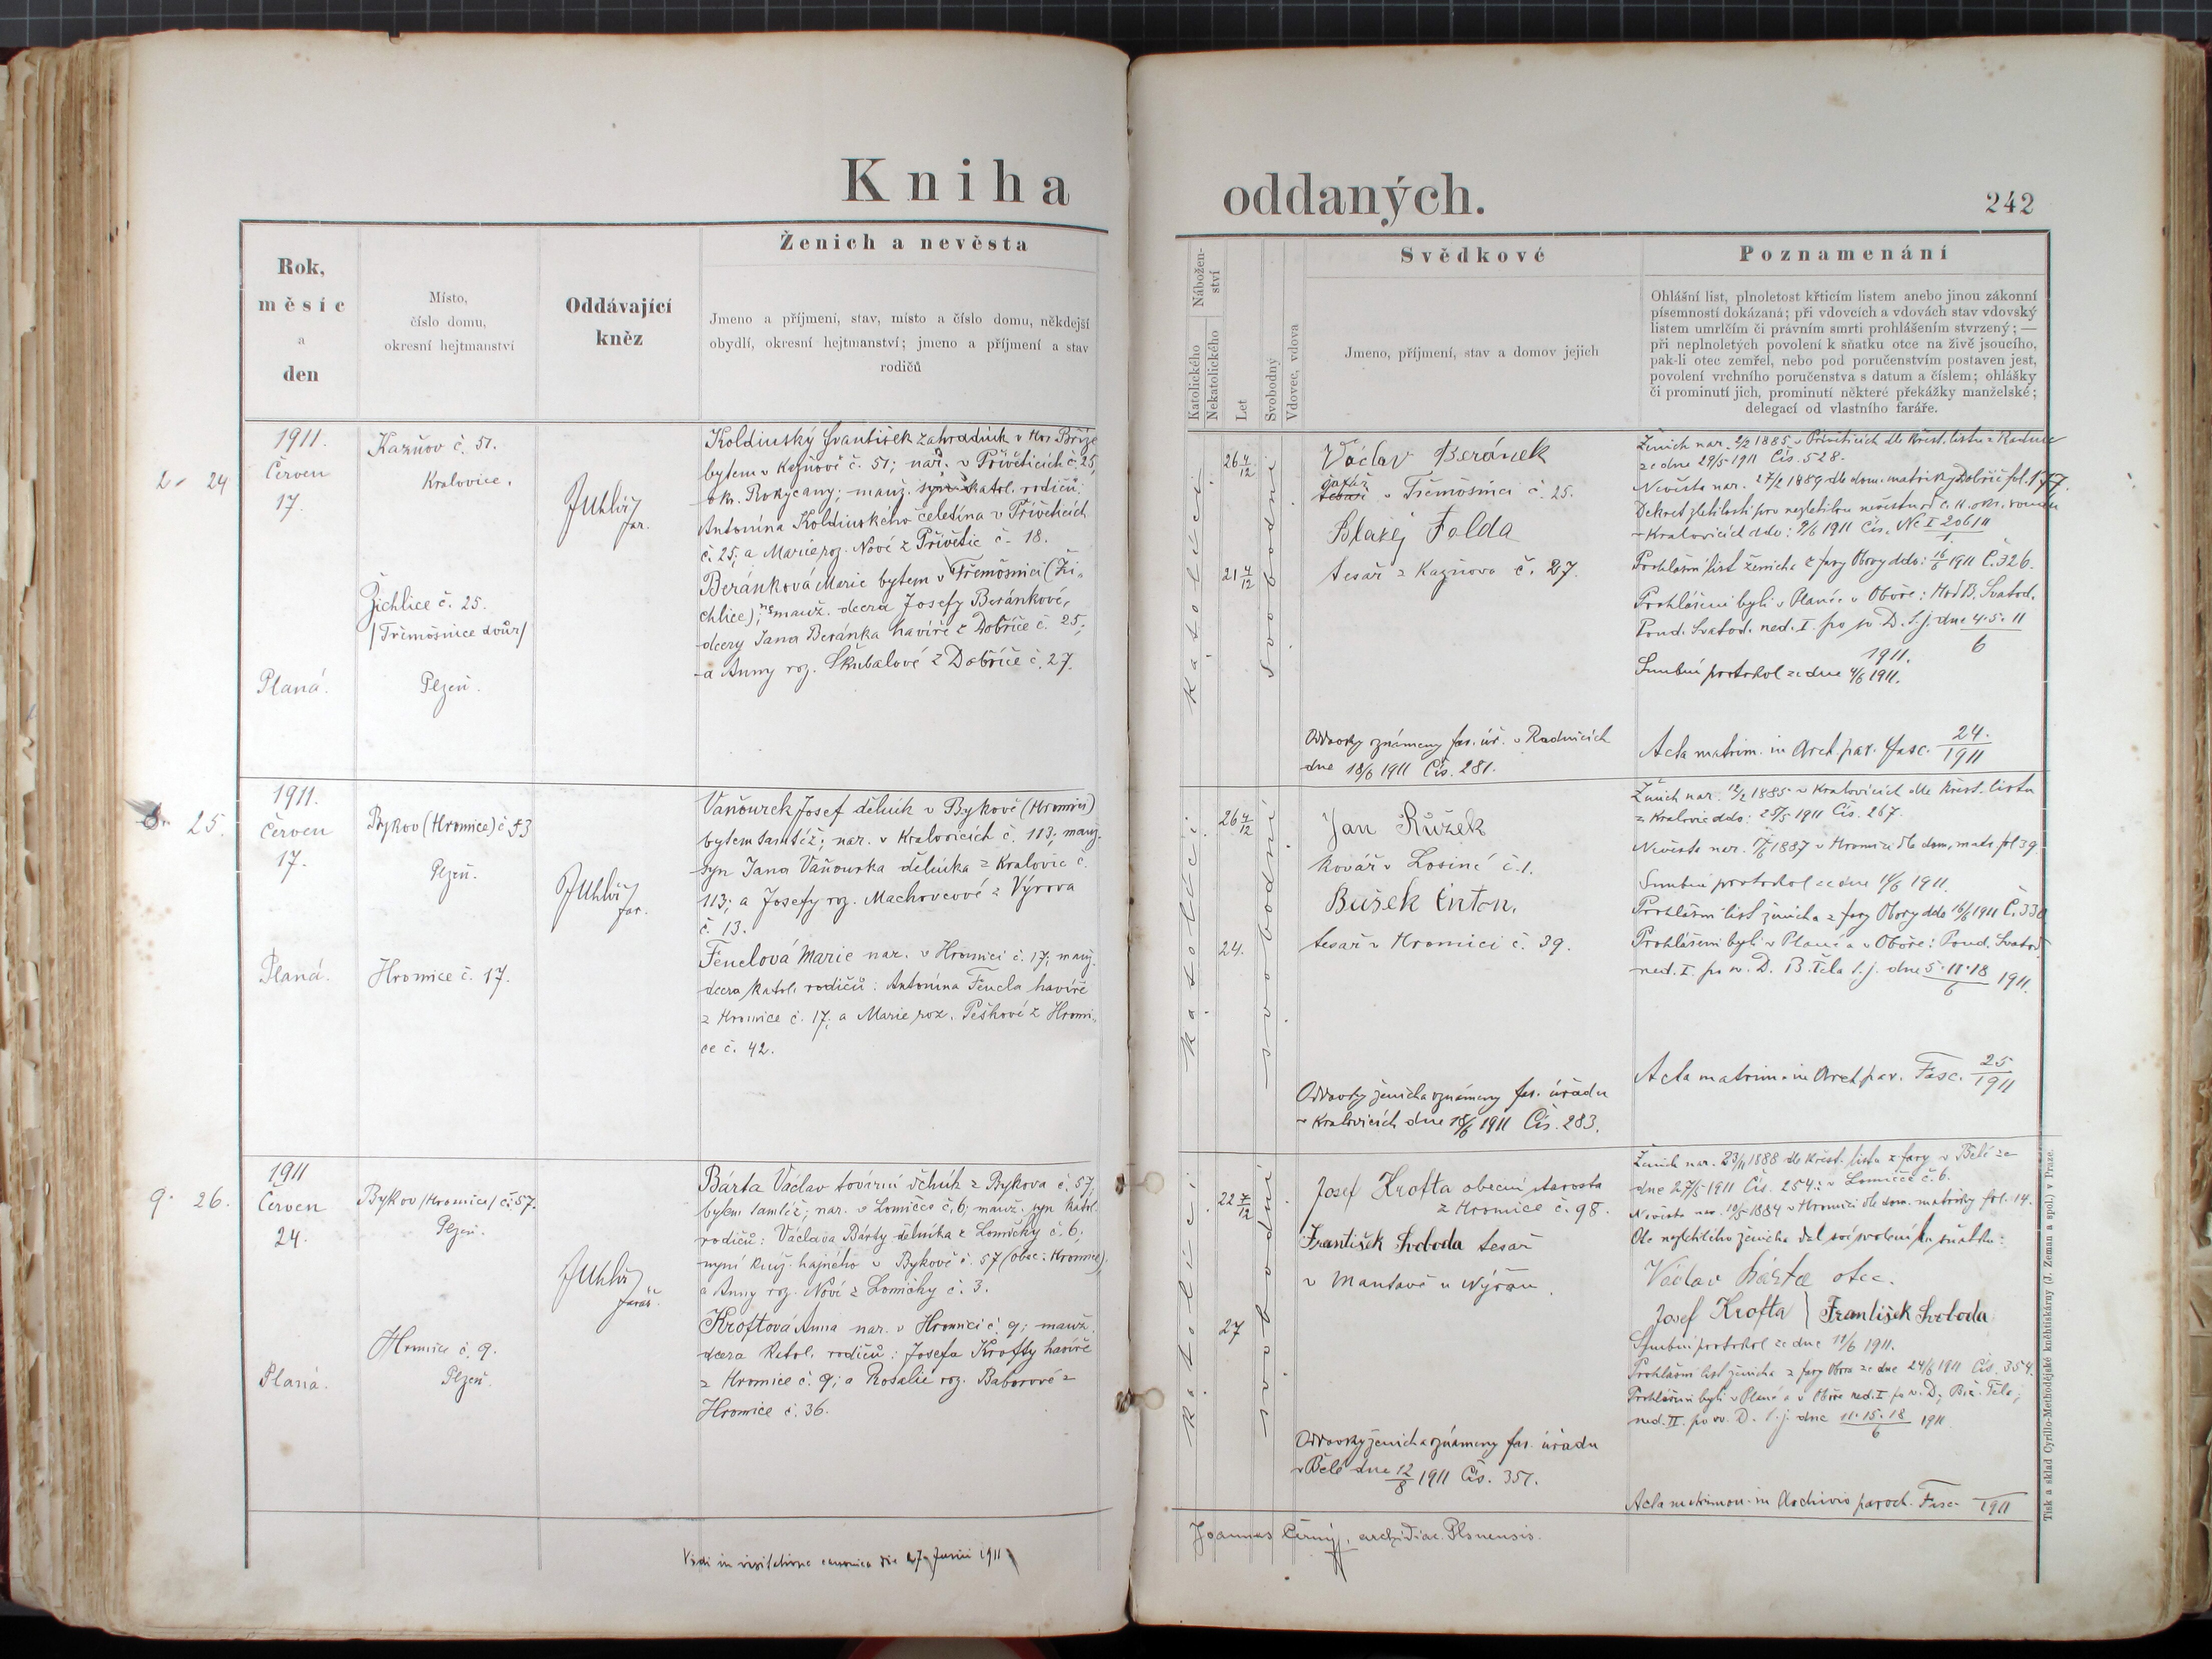 Kniha oddaných.
242
Rok,
měsíc
a
den
Místo,
číslo domu,
okresní hejtmanství
Oddávající
kněz
Ženich a nevěsta
Jmeno a příjmení, stav, místo a číslo domu, někdejší
obydlí, okresní hejtmanství; jmeno a příjmení a stav
rodičů
Nábožen-
ství
Katolického
Nekatolického
Let
Svobodný
Vdovec, vdova
Svědkové
Jmeno, příjmení, stav a domov jejich
Poznamenání
Ohlášní list, plnoletost křticím listem anebo jinou zákonní
písemností dokázaná; při vdovcích a vdovách stav vdovský
listem umrlčím či právním smrti prohlášením stvrzený; —
při neplnoletých povolení k sňatku otce na živě jsoucího,
pak-li otec zemřel, nebo pod poručenstvím postaven jest,
povolení vrchního poručenstva s datum a číslem; ohlášky
či prominutí jich, prominutí některé překážky manželské;
delegací od vlastního faráře.
24
1911.
Červen
17.
Planá.
Kazňov č. 51.
Kralovice.
Žichlice č. 25.
/Třemošnice dvůr/
Plzeň.
far.
Koldinský František zahradník v Hor. Bříze
bytem v Kazňově č. 51; nar. v Přívěticích č. 25,
okr. Rokycany; manž. syn katol. rodičů:
Antonína Koldinského čeledína v Přívěticích
č. 25; a Marie roz. Nové z Přívětic č. 18.
Beránková Marie bytem v Třemošnici (Ži-
chlice); manž. dcera Josefy Beránkové,
dcery Jana Beránka havíře z Dobříče č. 25;
a Anny roz. Škubalové z Dobříče č. 27.
katolíci
26 4/12
21 4/12
svobodní
Václav Beránek
v Třemošnici č. 25.
Blažej Folda
tesař z Kazňova č. 27.
Oddavky známeny far. úř. v Radnicích
dne 18/6 1911 Čís. 281.
Ženich nar. 2/2 1885 v Přívěticích dle křest. listu z Radnic
ze dne 29/5 1911 Čís. 528.
Nevěsta nar. 27/2 1889 dle dom. matriky Dobříč fol. 177.
Prohlášní list ženicha z fary Obory ddo: 16/6 1911 Č. 326.
Prohlášeni byli v Plané a v Oboře: Hod B. Svatod.
Pond. Svatod. ned. I. po sv. D. t. j. dne 4·5·11
6
1911.
Snubní protokol ze dne 4/6 1911.
Acta matrim. in Arch. par. Fasc. 24./1911
25.
1911.
Červen
17.
Planá.
Bykov (Hromice) č. 53
Plzeň.
Hromice č. 17.
far.
Vaňourek Josef dělník v Bykově (Hromici)
bytem tamtéž; nar. v Kralovicích č. 113; manž.
syn Jana Vaňourka dělníka z Kralovic č.
113; a Josefy roz. Machovcové z Výrova
č. 13.
Fenclová Marie nar. v Hromici č. 17; manž.
dcera katol. rodičů: Antonína Fencla havíře
z Hromice č. 17; a Marie roz. Peškové z Hromi-
ce č. 42.
katolíci
26 4/12
24.
svobodní
Jan Růžek
kovář v Losiné č. 1.
Bušek Anton.
tesař v Hromici č. 39.
Oddavky ženicha známeny far. úřadu
v Kralovicích dne 18/6 1911 Čís. 283.
Ženich nar. 12/2 1885 v Kralovicích dle křest. listu
z Kralovic ddo: 28/5 1911 Čís. 267.
Nevěsta nar. 1887 v Hromici dle dom. matr. fol 39.
Snubní protokol ze dne 1911.
Prohlášní list ženicha z fary Obory ddo 16/6 1911
Prohlášeni byli v Plané a v Oboře: Pond. Svatod.
ned. I. po sv. D. B. Těla t. j. dne 5·11·18/6 1911.
Acta matrim. in Arch. par. Fasc. 25/1911
26.
1911
Červen
24.
Planá.
Bykov /Hromice/ č. 57.
Plzeň.
Hromice č. 9.
Plzeň.
farář.
Bárta Václav tovární dělník z Bykova č. 57,
bytem tamtéž; nar. v Lomičce č. 6; manž. syn katol.
rodičů: Václava Bárty dělníka z Lomičky č. 6;
nyní kníž. hajného v Bykově č. 57 (obec: Hromice);
a Anny roz. Nové z Lomičky č. 3.
Kroftová Anna nar. v Hromici č. 9; manž.
dcera katol. rodičů: Josefa Krofty havíře
z Hromice č. 9; a Rosalie roz. Baborové z
Hromice č. 36.
katolíci
22 7/12
27
svobodní
Josef Krofta obecní starosta
z Hromice č. 98.
František Svoboda tesař
v Mantově u Nýřan.
Oddavky ženicha známeny far. úřadu
v Bělé dne 12/8 1911 Čís. 351.
Ženich nar. 23/11 1888 dle křest. listu z fary v Bělé ze
dne 27/5 1911 Čís. 254: v Lomičce č. 6.
Nevěsta nar. 1884 v Hromici dle dom. matriky fol. 14.
Otec nezletilého ženicha dal své svolení ku sňatku:
Václav Bárta otec.
Josef Krofta } František Svoboda
Snubní protokol ze dne 11/6 1911.
Prohlášní list ženicha z fary Obora ze dne 24/6 1911 Čís. 354.
Prohlášeni byli v Plané a v Oboře ned. I. po sv. D; Bož. Těla;
ned. II. po sv. D. t. j. dne 11·15·18/6 1911
Acta matrimon. in Archivio paroch. Fasc. 1911
Vidi in visitatione canonica die 27 Junii 1911
Joannes Černý, archidiac. Plsnensis.
Tisk a sklad Cyrillo-Methodějské knihtiskárny (J. Zeman a spol.) v Praze.